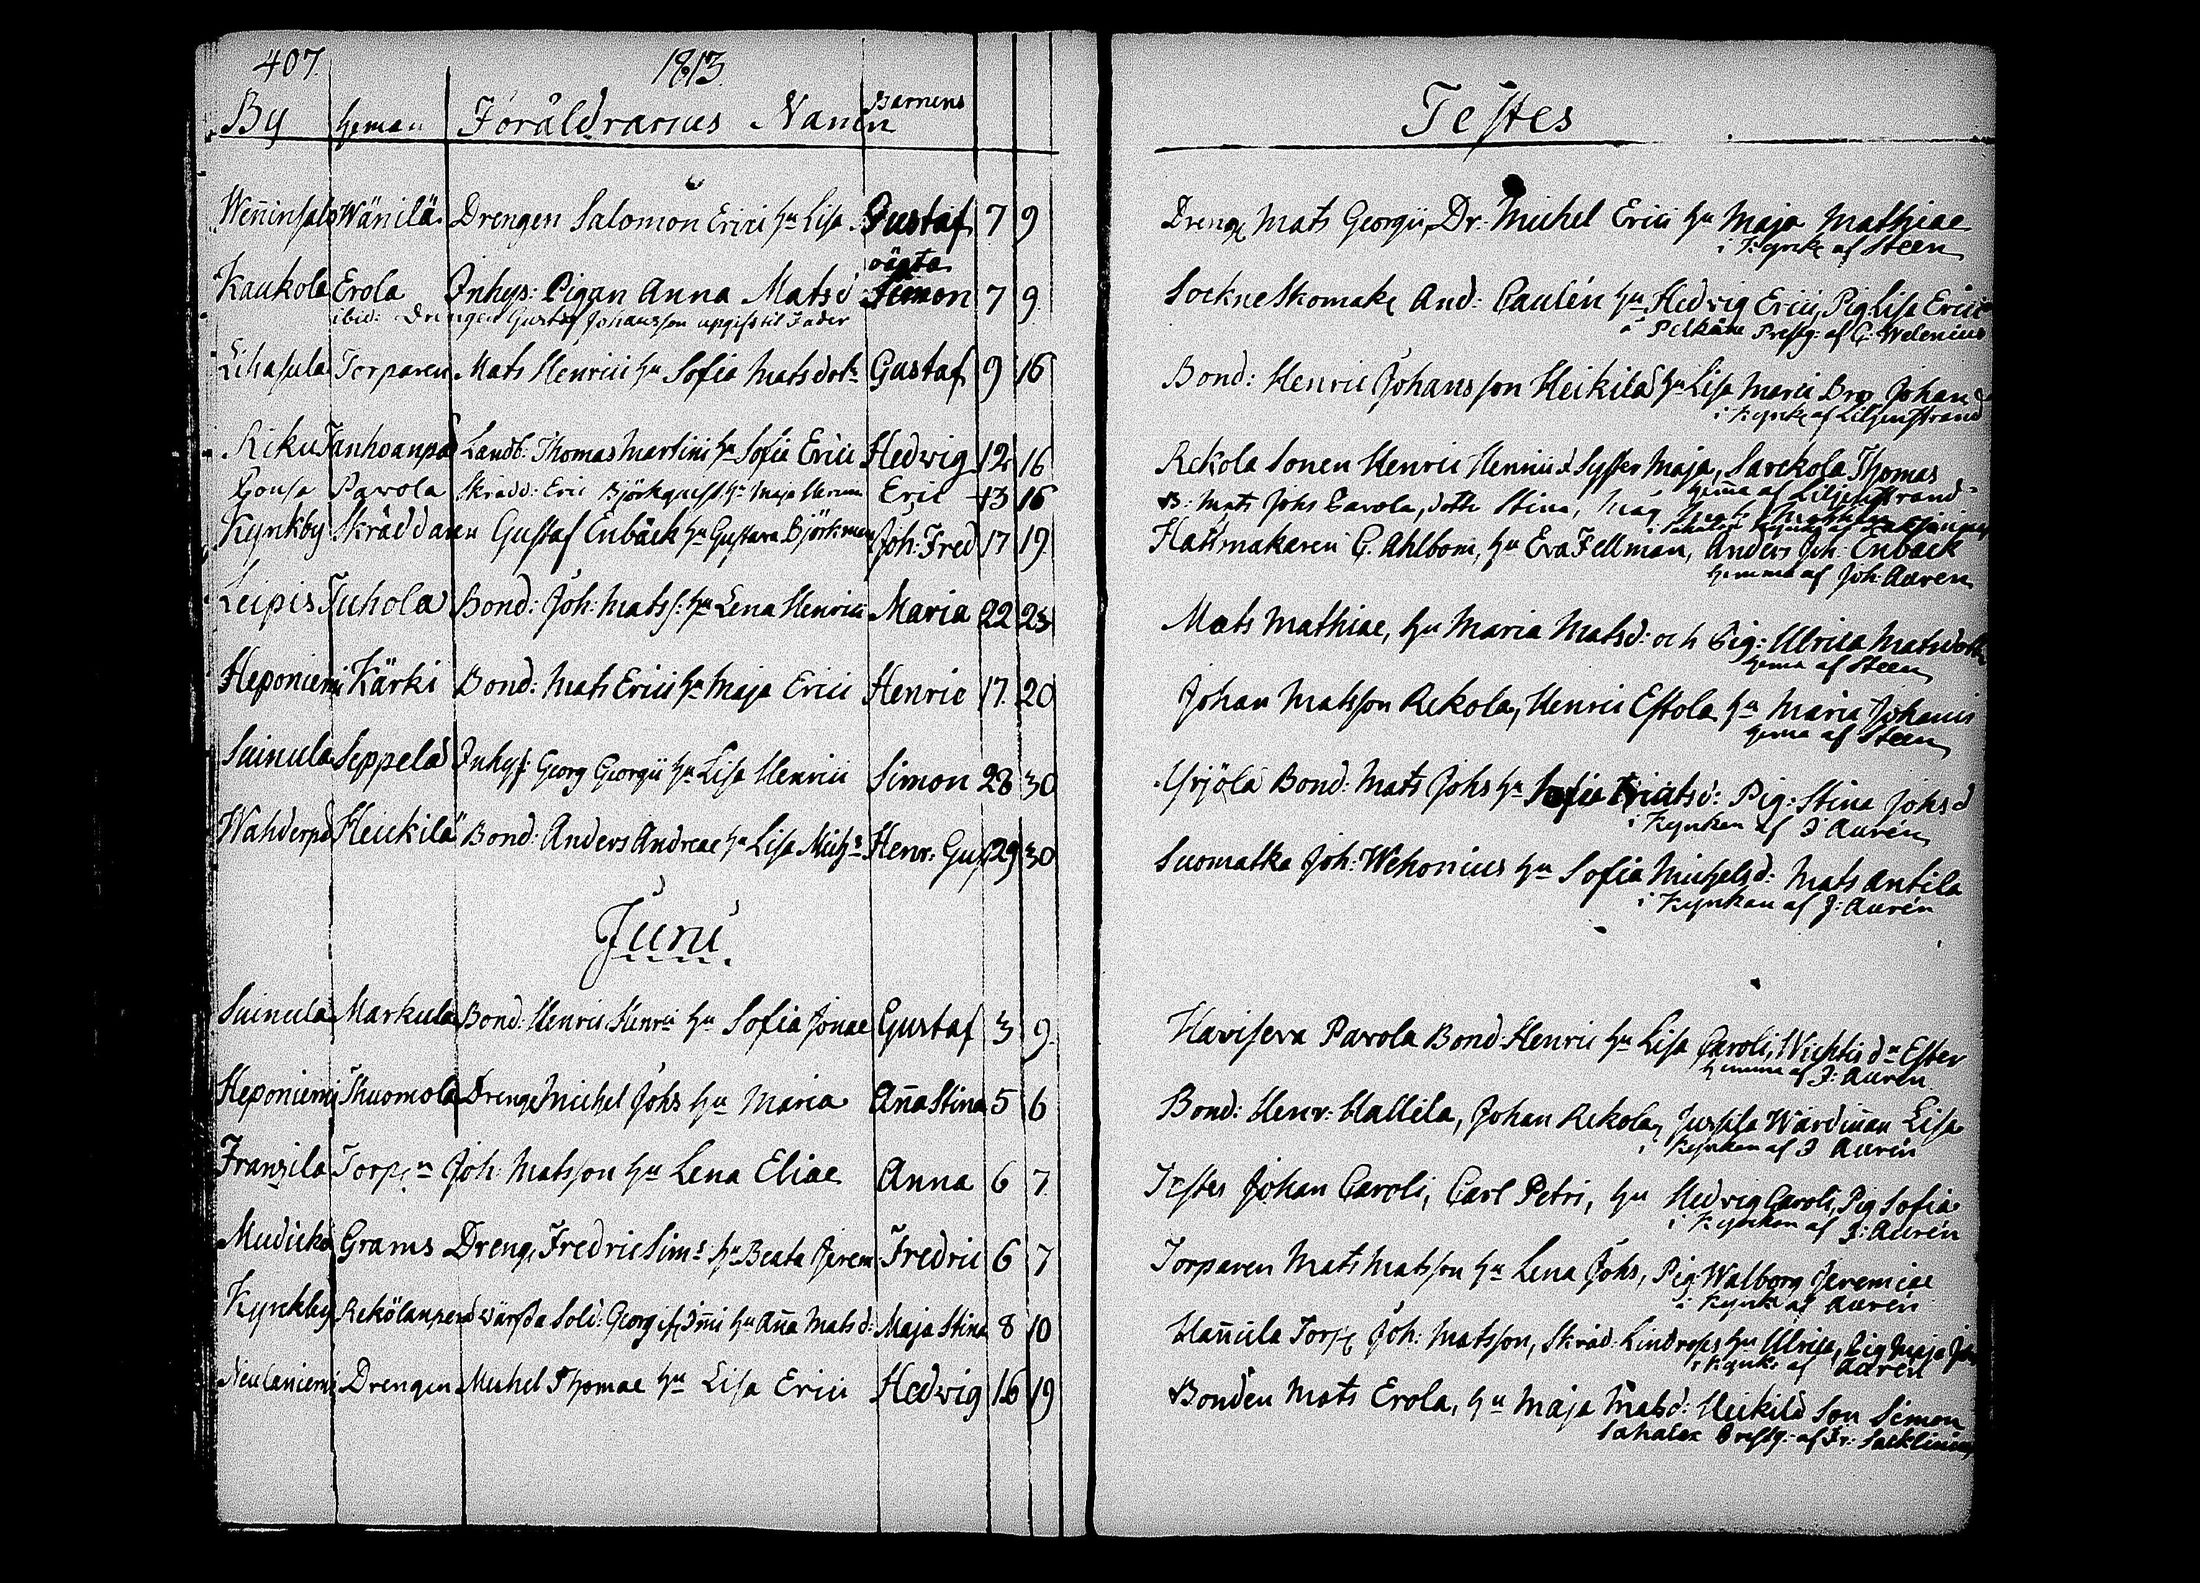 407. 1813.
By Heman Föräldrarnas Namn Barnens
Testes
Weninsalo Wänilä Drengen Salomon Erici hu Lisa Gustaf 7 9
oägta
Kaukola Erola Inhys: Pigan Anna Matsd Simon 7 9
ibid: Drengen Gustaf Johansson upgifs til Fader
Lihasula Torparen Mats Henrici hu Sofia Matsdotr Gustaf 9 16
Riku Landb: Thomas Martini hu Sofia Erici Hedwig 12 16
Pavola Skrädd: Eric Björkquist hu Maja Eric 13 16
Kyrkby Skräddaren Gustaf Enbäck hu Gustava Björkman Joh: Fred 17 19
Leipis Tuhola Bond: Joh: Matss: hu Lena Henrici Maria 22 23
Heponiemi Kärki Bond: Mats Erici hu Maja Erici Henric 17. 20
Suinula Seppelä Inhys: Georg Georgii hu Lisa Henrici Simon 28 30
Heickilä Bond: Anders Andreae hu Lisa Michs Henr: Gust 29 30
Juni
Suinula Markula Bond: Henric Henrici hu Sofia Jonae Gustaf 3 9.
Heponiemi Thuomola Dreng Michel Johs hu Maria Aña Stina 5 6
Franzila Torpn Joh: Matsson hu Lena Eliae Anna 6 7.
Grams Dreng Fredric Sims hu Beata Jerem: Fredric 6 7
Kyrckby Sold: Georg hu Aña Matsd: Maja Stina 8 10
Neulaniemi Drengen Michel Thomae hu Lisa Erici Hedwig 16 19
Dreng Mats Georgii, Dr: Michel Erici hu Maja Mathiae
i Kyrk af Steen
Sockne Skomak And: Paulén hu Hedvig Erici, Pig Lisa Erici
i Pelkäne Prestg: af G: Welenius
Bond: Henric Johansson Heikilä hu Lisa Marci Bror Johan
i Kyrk af Liljenstrand
Rekola Sonen Henric Henrici d Syster Maja, Sarckola Thomas
Hema af Liljenstrand
B: Mats Johs Pavola, dotr Stina,
Hattmakaren G. Ahlbom, hu Eva Fellman, Anders Joh: Enbäck
Hemma af Joh: Auren
Mats Mathiae, hu Maria Matsd: och Pig: Ulrica Matsdottr
hema af Steen
Johan Matsson Rekola, Henric Estola hu Maria Johanis
Hema af Steen
Yrjölä Bond: Mats Johs hu Sofia Matsd: Pig: Stina Johsd
i Kyrkan af J Aurén
Suomalka Joh: Wehonius hu Sofia Michelsd: Mats Antila
i Kyrkan af J: Aurén
Haviseva Pavola Bond: Henric hu Lisa Caroli, dn Ester
hemma af J: Aurén
Bond: Henr: Uallila, Johan Rekola, Jussila Wärdiñan Lisa
i Kyrkan af J Aurén
Testes Johan Caroli, Carl Petri, hu Hedvig Caroli, Pig Sofia
i Kyrckan af J: Aurén
Torparen Mats Matsson hu Lena Johs, Pig Walborg Jeremiae
i Kyrk af Aurén
Uañula Torp Joh: Matsson, Skräd: Lindroos hu Ulrica, Pig Maja
i Kyrk: af Aurén
Bonden Mats Erola, hu Maja Matsd: Heickilä Son Simon
Sahalax Prestg: af Fr: Sacklinius